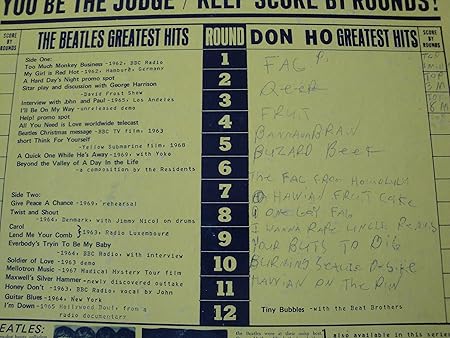 YOU BE THE JUDGE / KEEP SCORE BY ROUNDS!
SCORE
BY
ROUNDS
THE BEATLES GREATEST HITS
Side One:
Too Much Monkey Business -1962, BBC Radio
My Girl is Red Hot -1962, Hamburg, Germany
A Hard Day's Night promo spot
Sitar play and discussion with George Harrison
-David Frost Show
Interview with John and Paul -1965, Los Angeles
I'll Be On My Way -unreleased demo
Help! promo spot
All You Need is Love worldwide telecast
Beatles Christmas message -BBC TV film, 1963
short Think For Yourself
-Yellow Submarine film, 1968
A Quick One While He's Away -1969, with Yoko
Beyond the Valley of A Day in the Life
-a composition by the Residents
Side Two:
Give Peace A Chance -1969, rehearsal
Twist and Shout
-1964, Denmark, with Jimmy Nicol on drums
Carol
Lend Me Your Comb }1963, Radio Luxembourg
Everybody's Tryin To Be My Baby
-1964, BBC Radio, with interview
Soldier of Love -1963 demo
Mellotron Music -1967 Magical Mystery Tour film
Maxwell's Silver Hammer -newly discovered outtake
Honey Don't -1963, BBC Radio, vocal by John
Guitar Blues -1964, New York
I'm Down -1965 Hollywood Bowl, from a
radio documentary
ROUND
1
2
3
4
5
6
7
8
9
10
11
12
DON HO GREATEST HITS
FAG
Queer
FRUIT
BUZARD Beef
THE FAG FROM HONOLULU
HAWIAN FRUIT CAKE
ONE GAY FAG
I WANNA RAPE UNCLE
YOUR BUTS TO BIG
ON THE RUN
Tiny Bubbles -with the Beat Brothers
SCORE
BY
ROUNDS
BEATLES:
the Beatles were at their
also available in this series